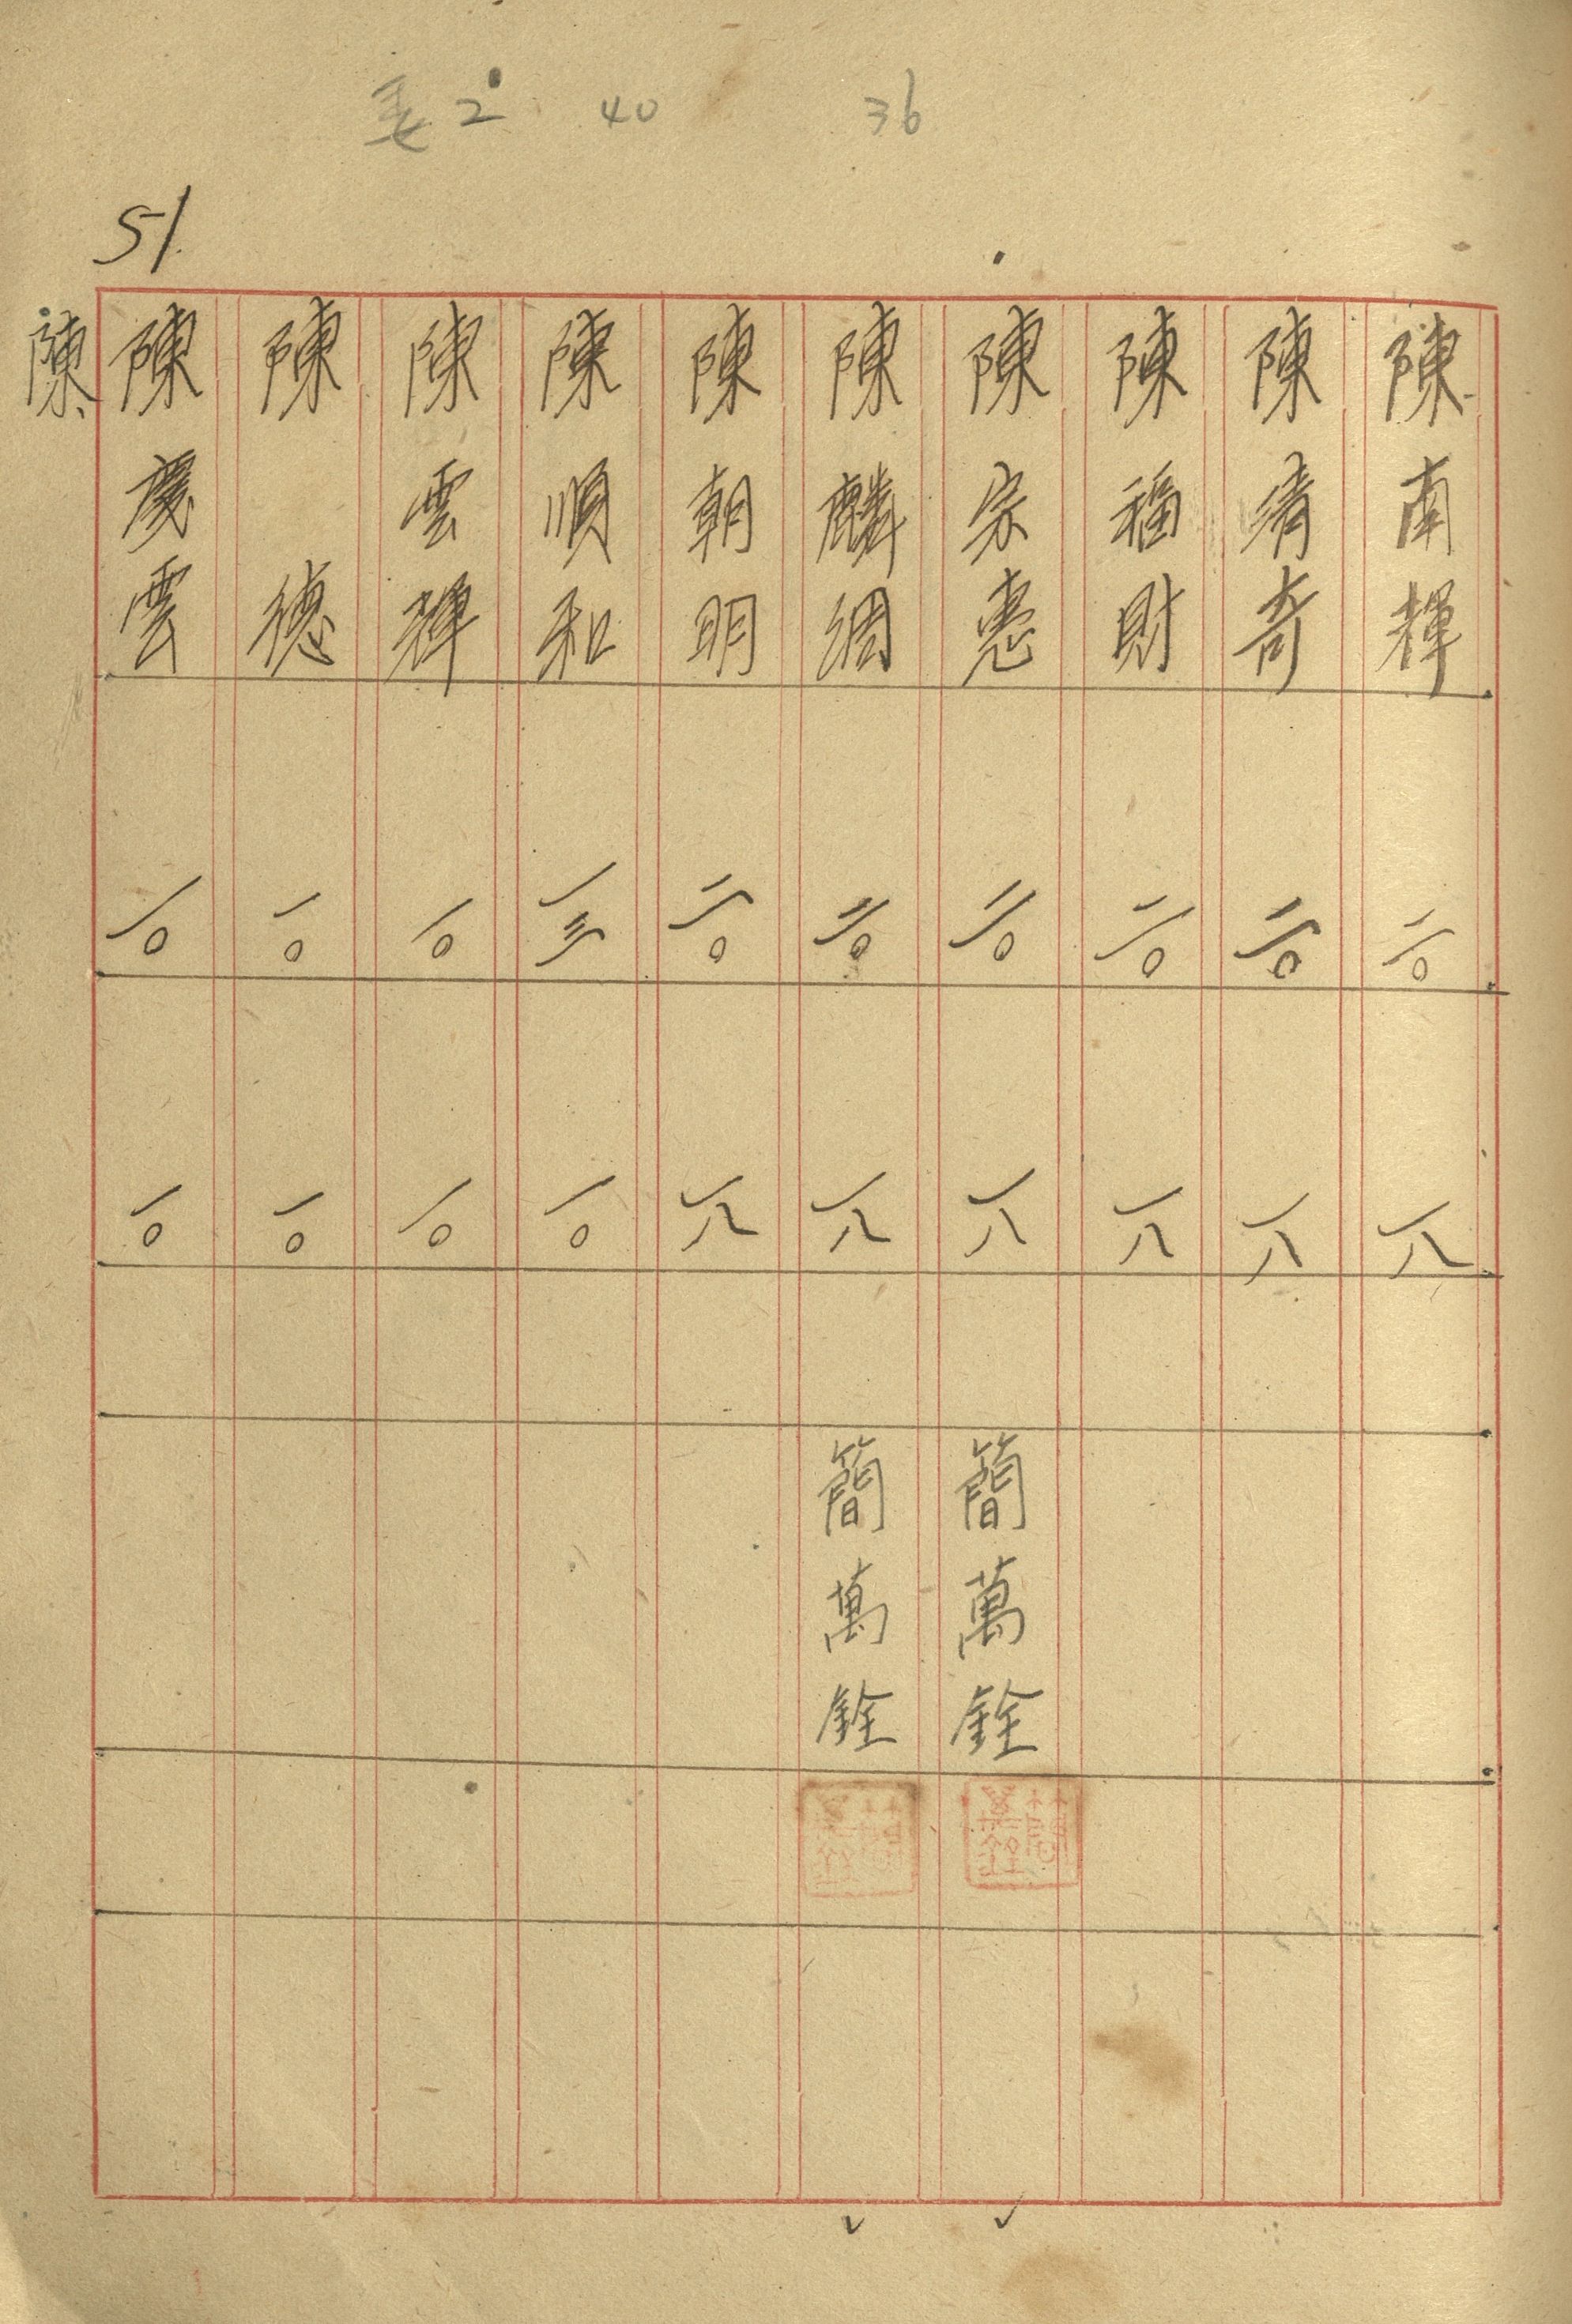 差2 40 36
51
陳南輝 二〇 一八
陳清奇 二〇 一八
陳福財 二〇 一八
陳宗惠 二〇 一八 簡萬銓
陳麟綢 二〇 一八 簡萬銓
陳朝明 二〇 一八
陳順和 一三 一〇
陳雲輝 一〇 一〇
陳德 一〇 一〇
陳慶雲 一〇 一〇
陳